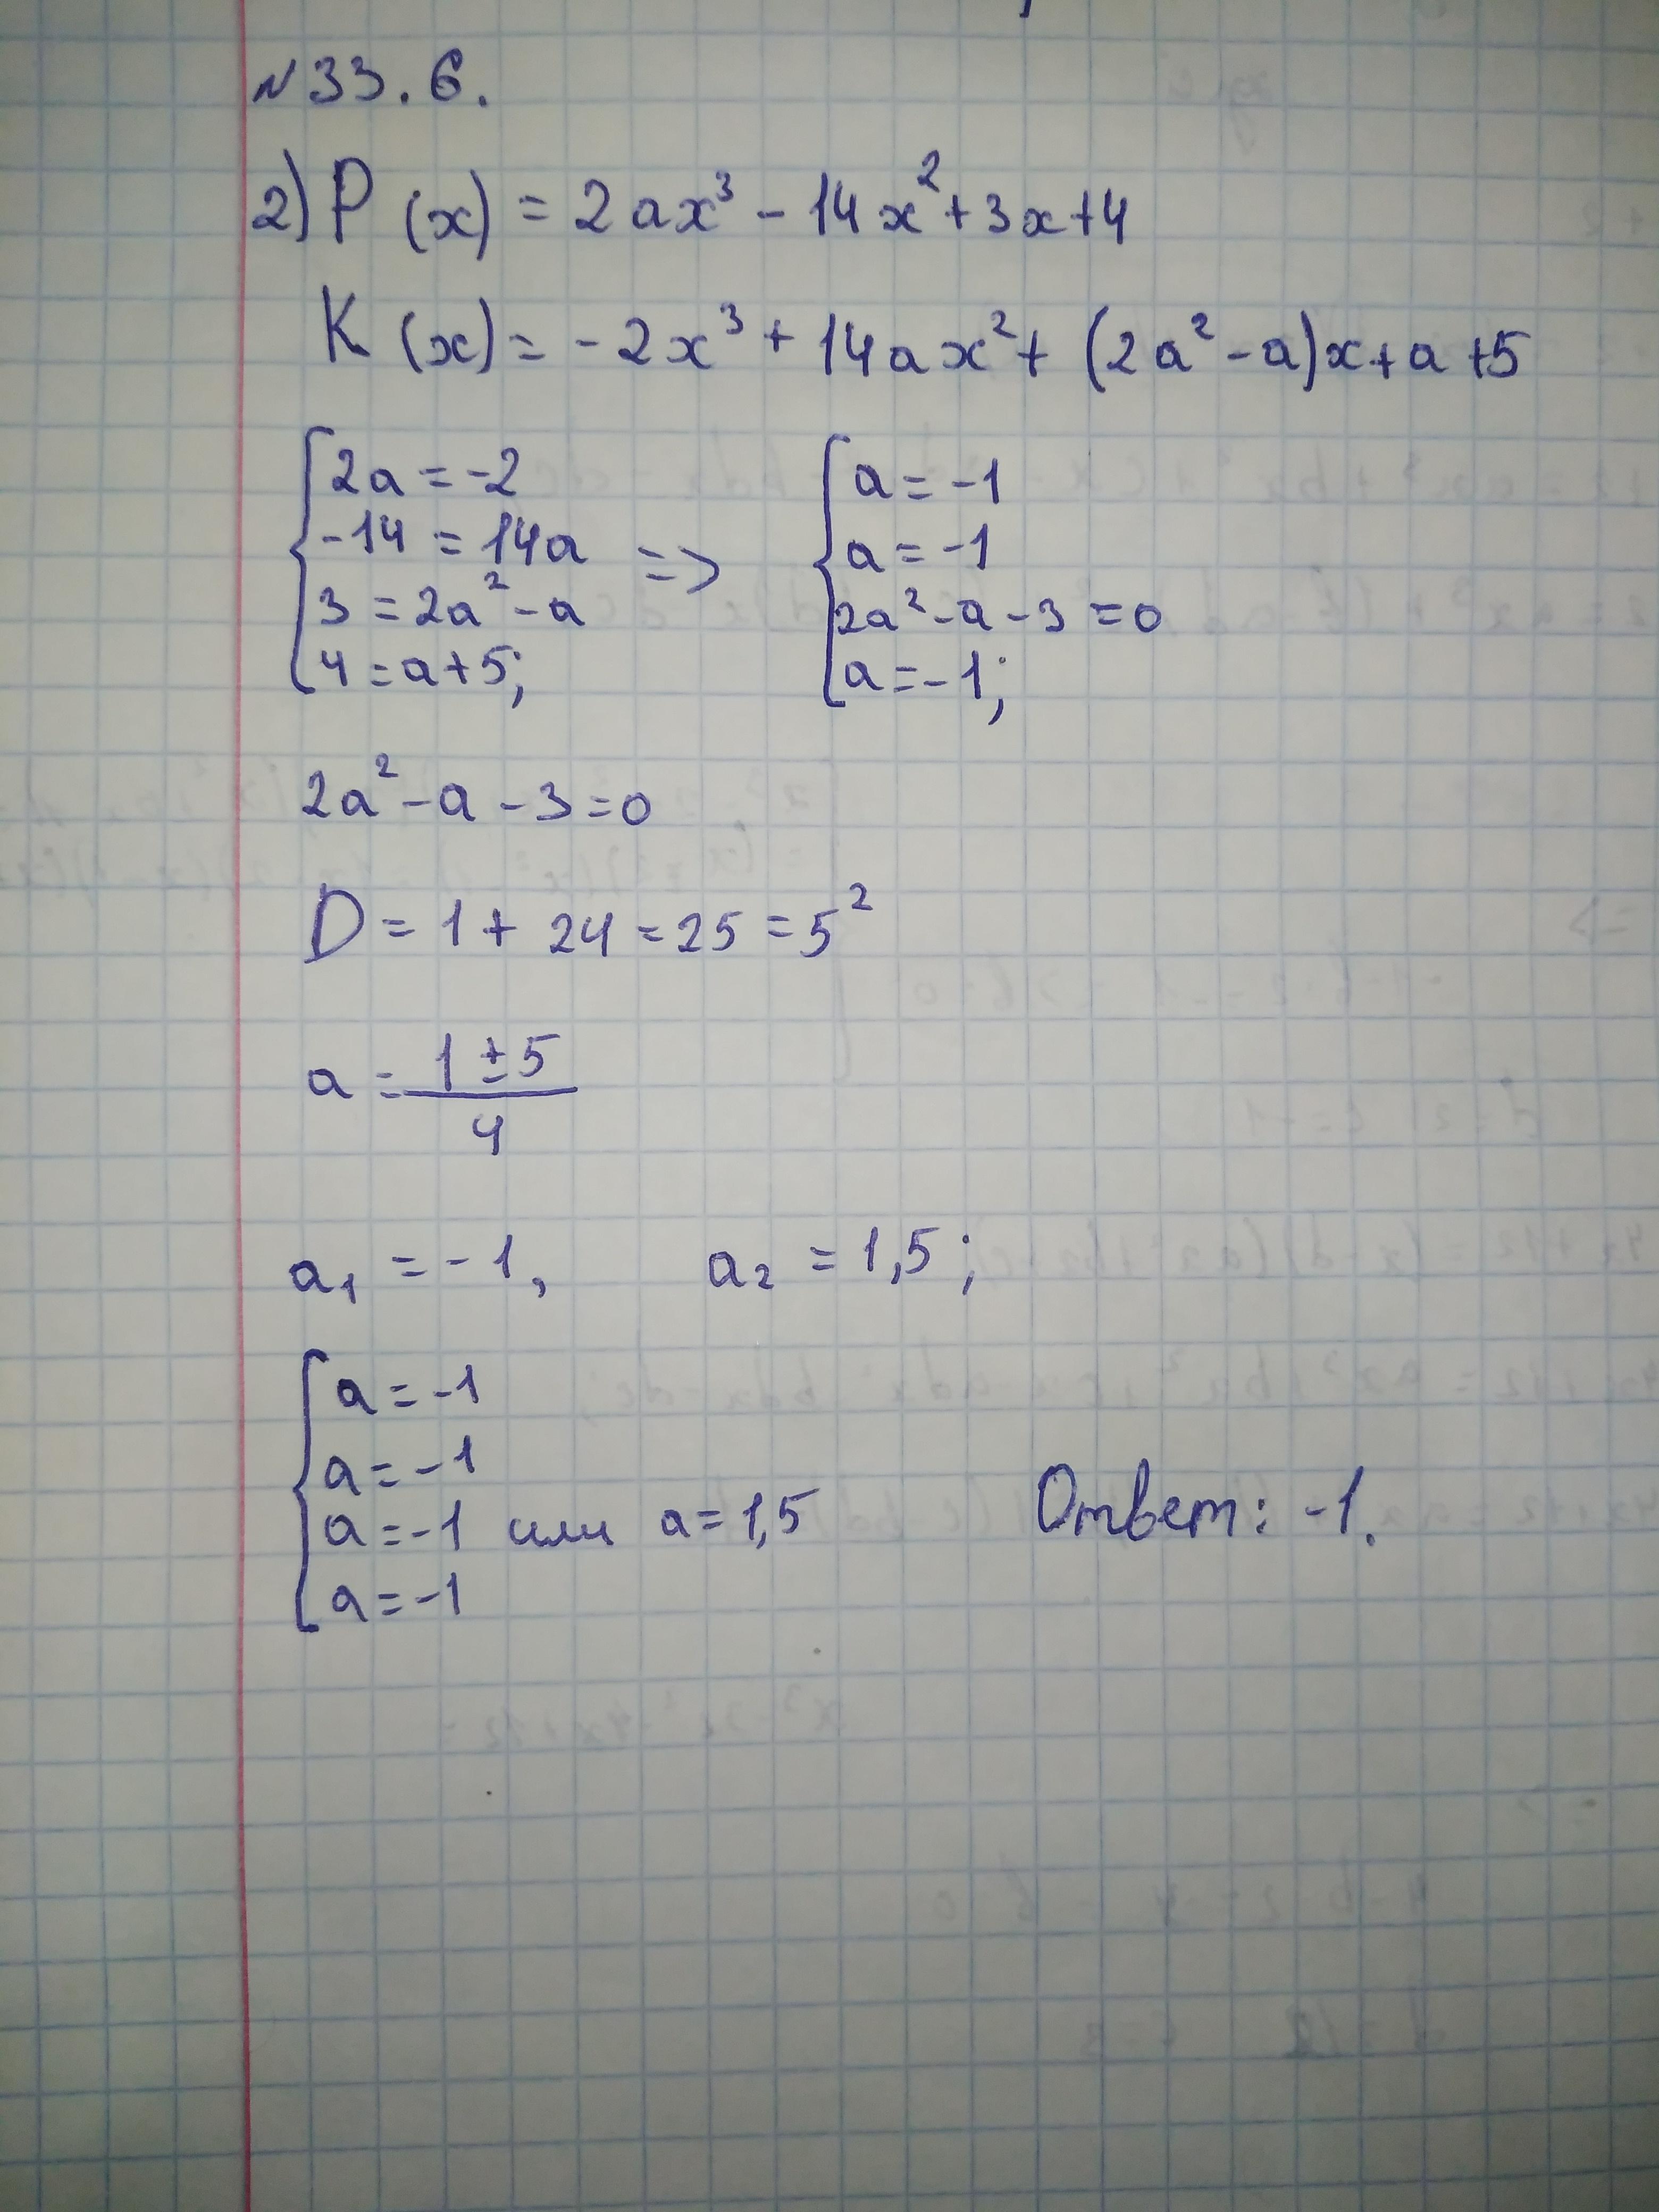 N 33.6.
2) P(x) = 2ax³ - 14x² + 3x + 4
K(x) = -2x³ + 14ax² + (2a² - a)x + a + 5
2a = -2
-14 = 14a
3 = 2a² - a
4 = a + 5;
=>
a = -1
a = -1
2a² - a - 3 = 0
a = -1;
2a² - a - 3 = 0
D = 1 + 24 = 25 = 5²
a = (1 ± 5)/4
a₁ = -1, a₂ = 1,5;
a = -1
a = -1
a = -1 или a = 1,5
a = -1
Ответ: -1.